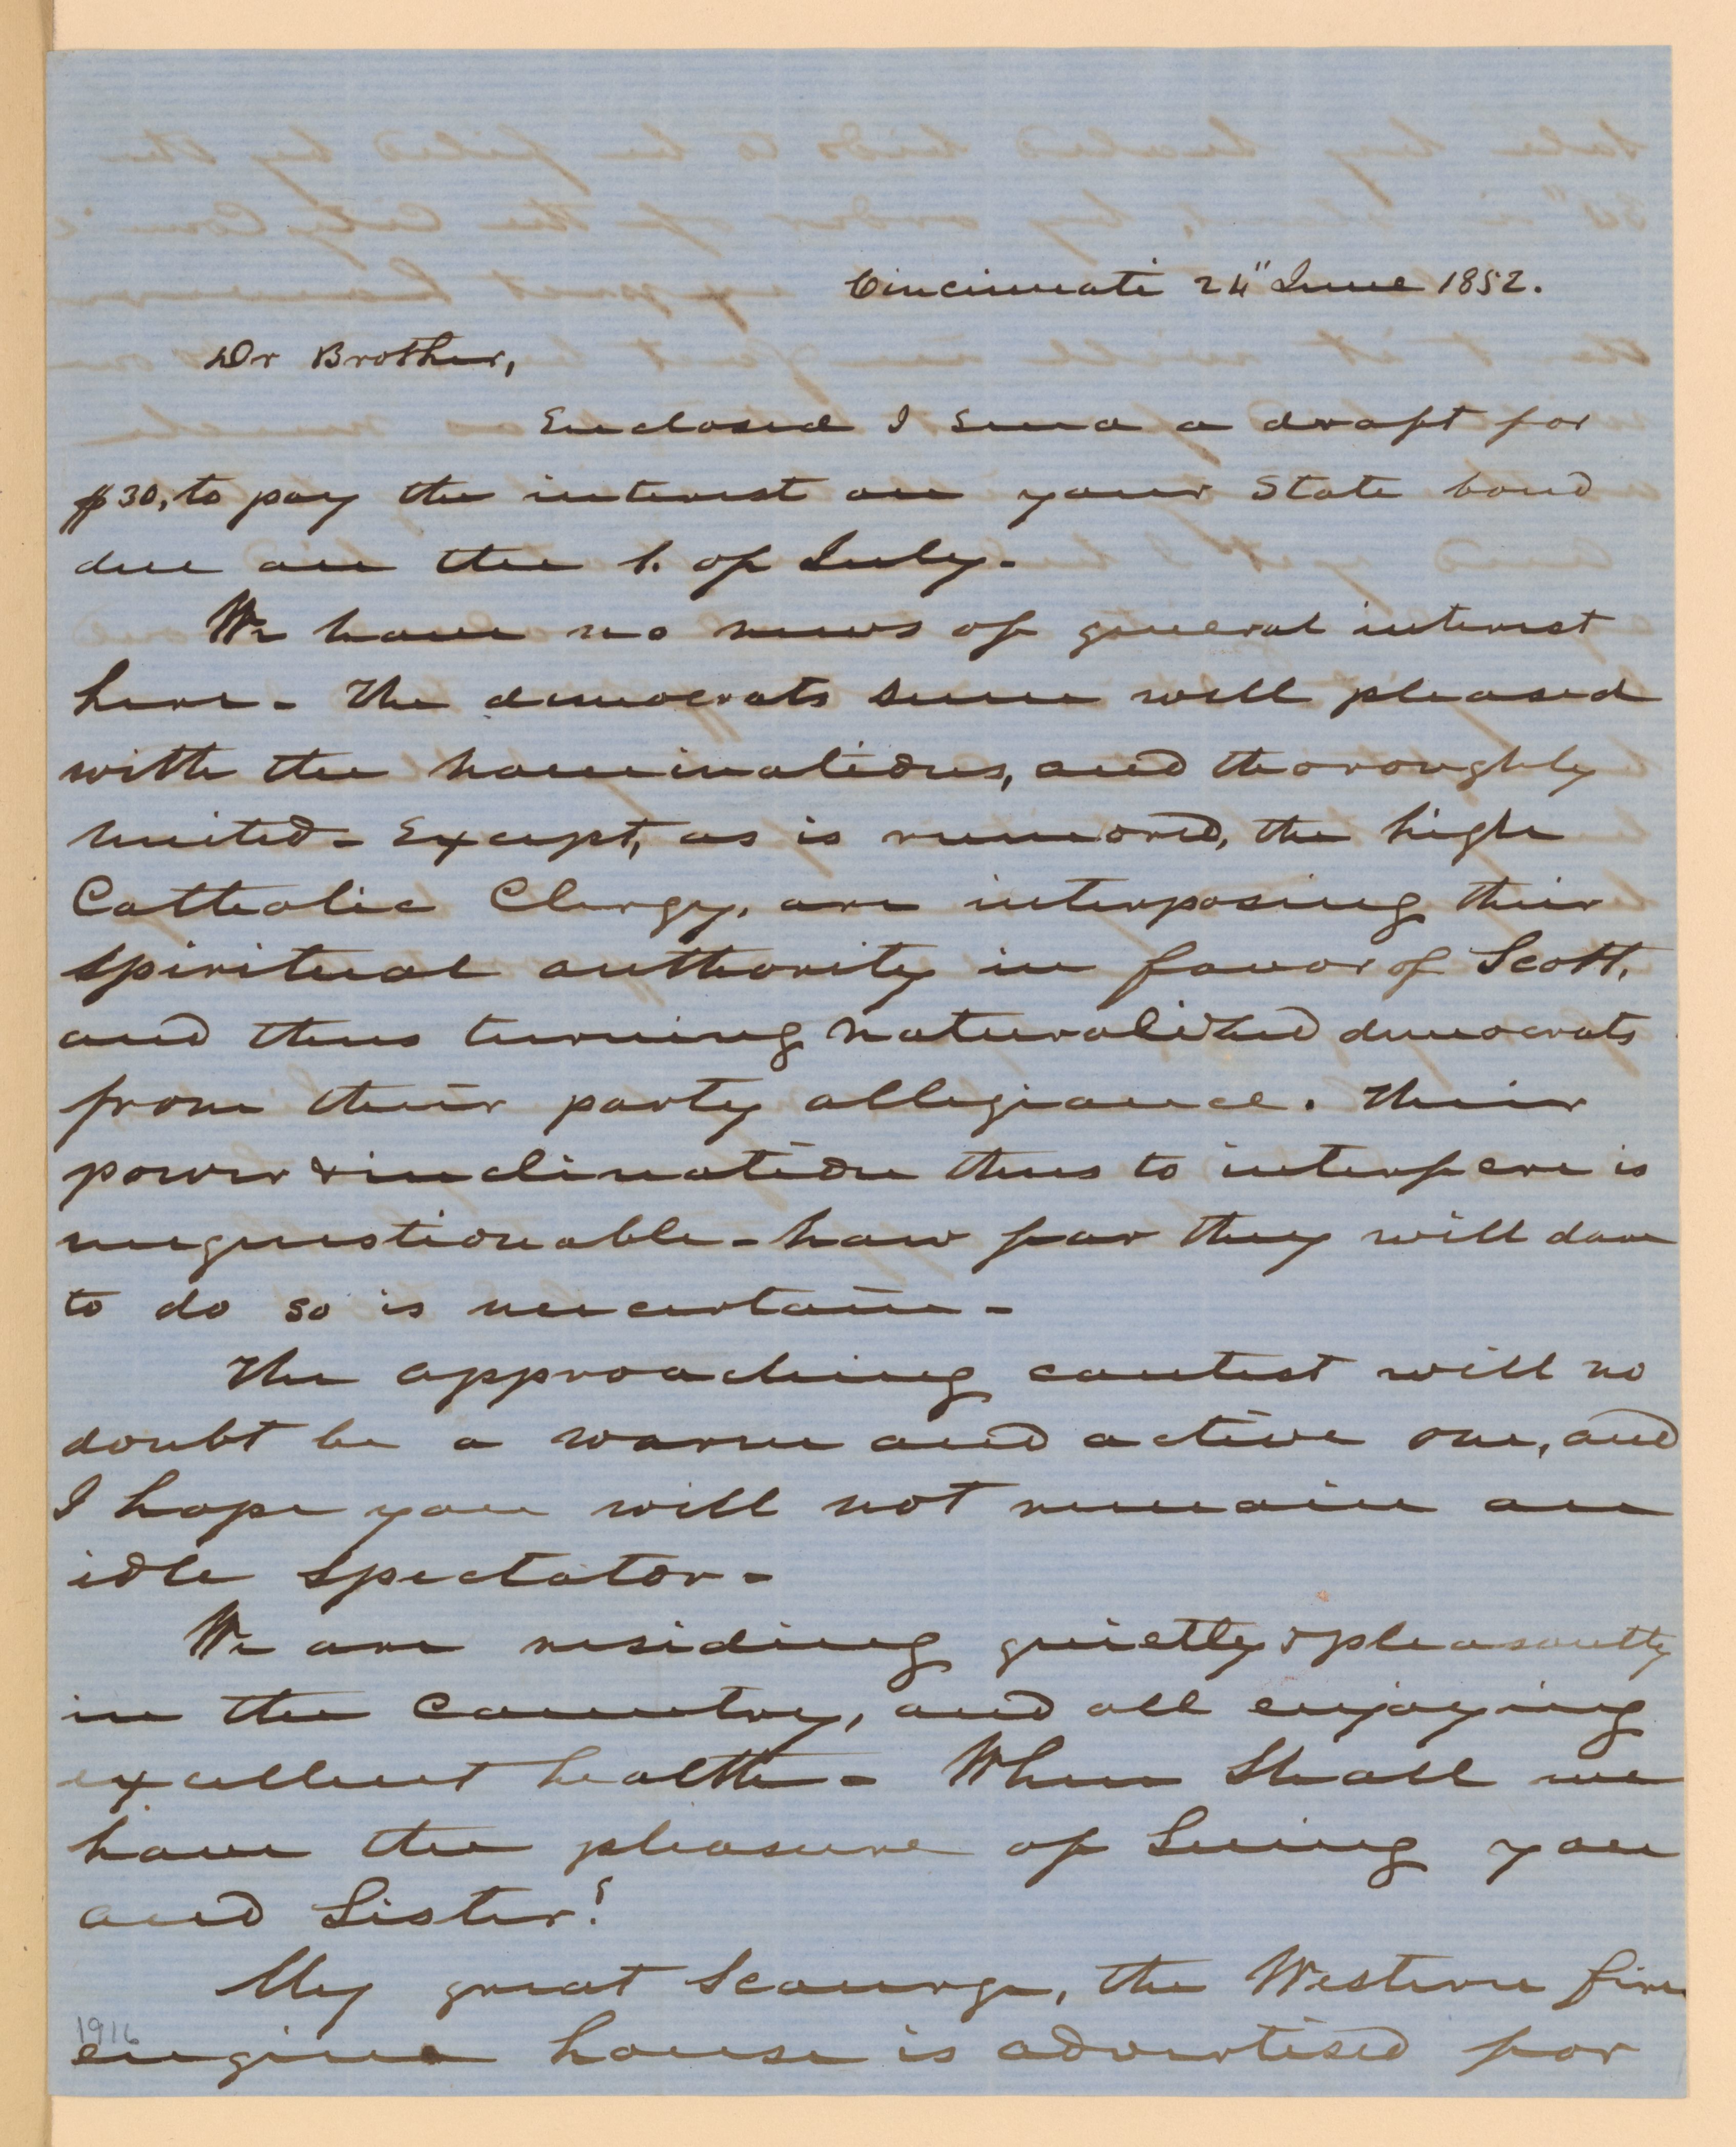 Cincinnati 24" June 1852.
Dr Brother,
Enclosed I send a draft for
$30, to pay the interest on your State bond
due on the 1. of July.
We have no news of general interest
here - The democrats seem well pleased
with the nominations, and thoroughly
united - Except, as is rumored, the high
Catholic Clergy, are interposing their
spiritual authority in favor of Scott,
and thus turning naturalized democrats
from their party allegiance. Their
power & inclination thus to interfere is
unquestionable - how far they will dare
to do so is uncertain -
The approaching contest will no
doubt be a warm and active one, and
I hope you will not remain an
idle spectator -
We are residing quietly & pleasantly
in the Country, and all enjoying
excellent health - When shall we
have the pleasure of Seeing you
and Sister?
My great Scourge, the Western fire
engine house is advertised for
1916